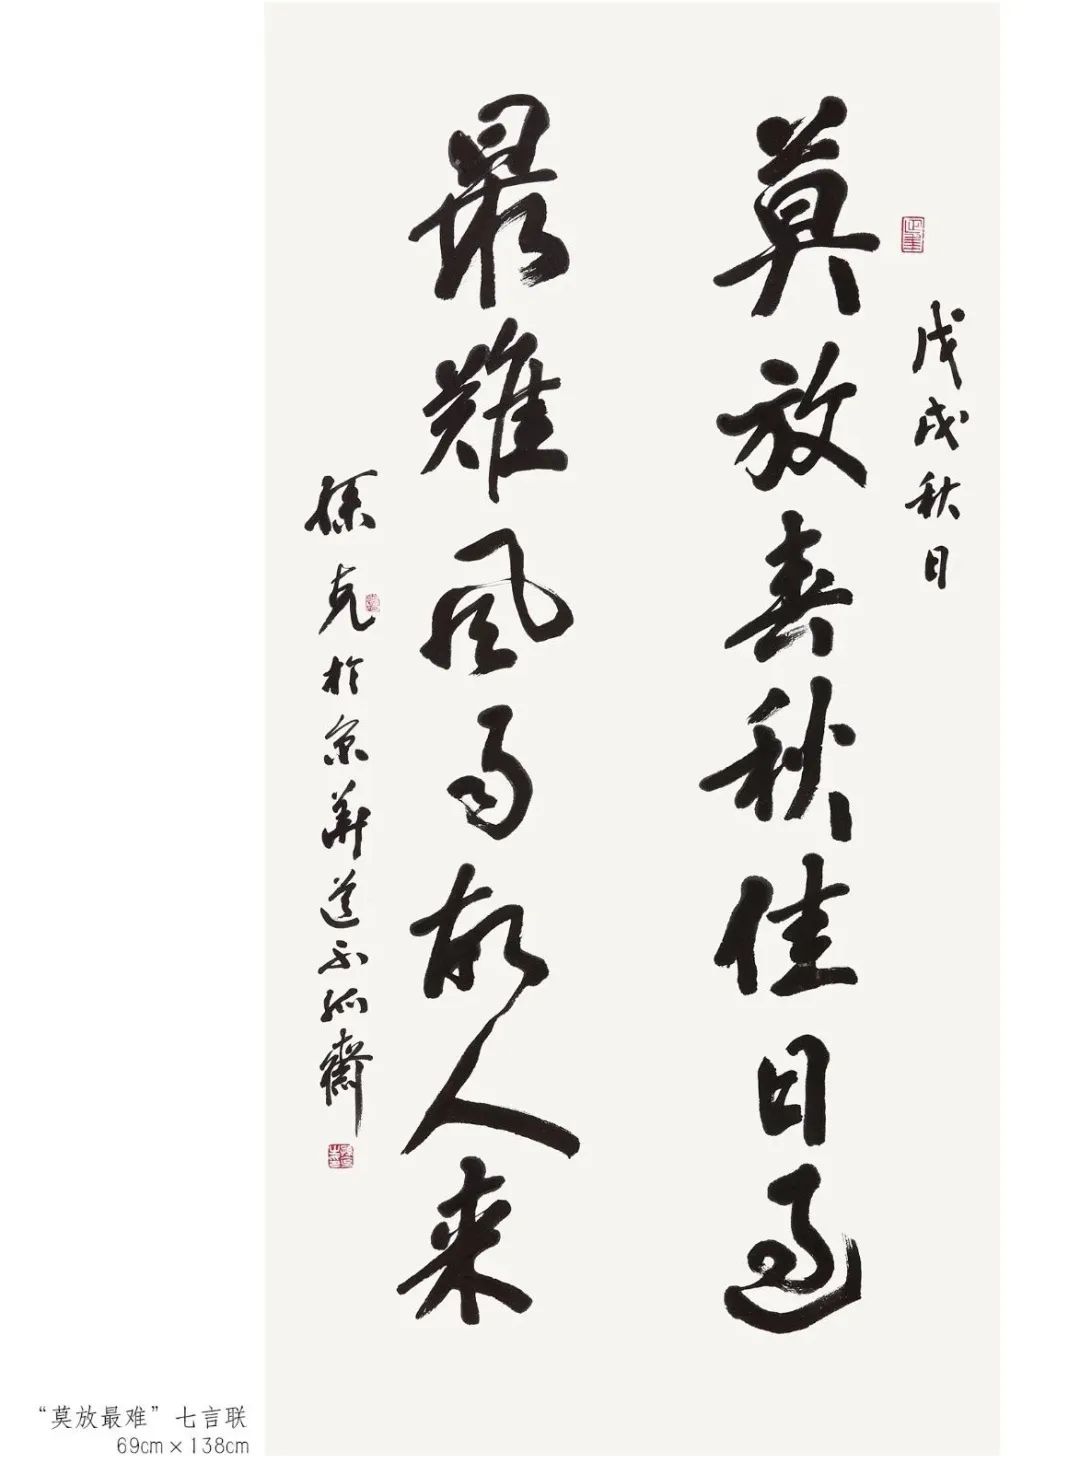 戊戌秋日
莫放春秋佳日過
最難風雨故人来
孫克於京華道不孤齋
“莫放最难”七言联
69cm×138cm